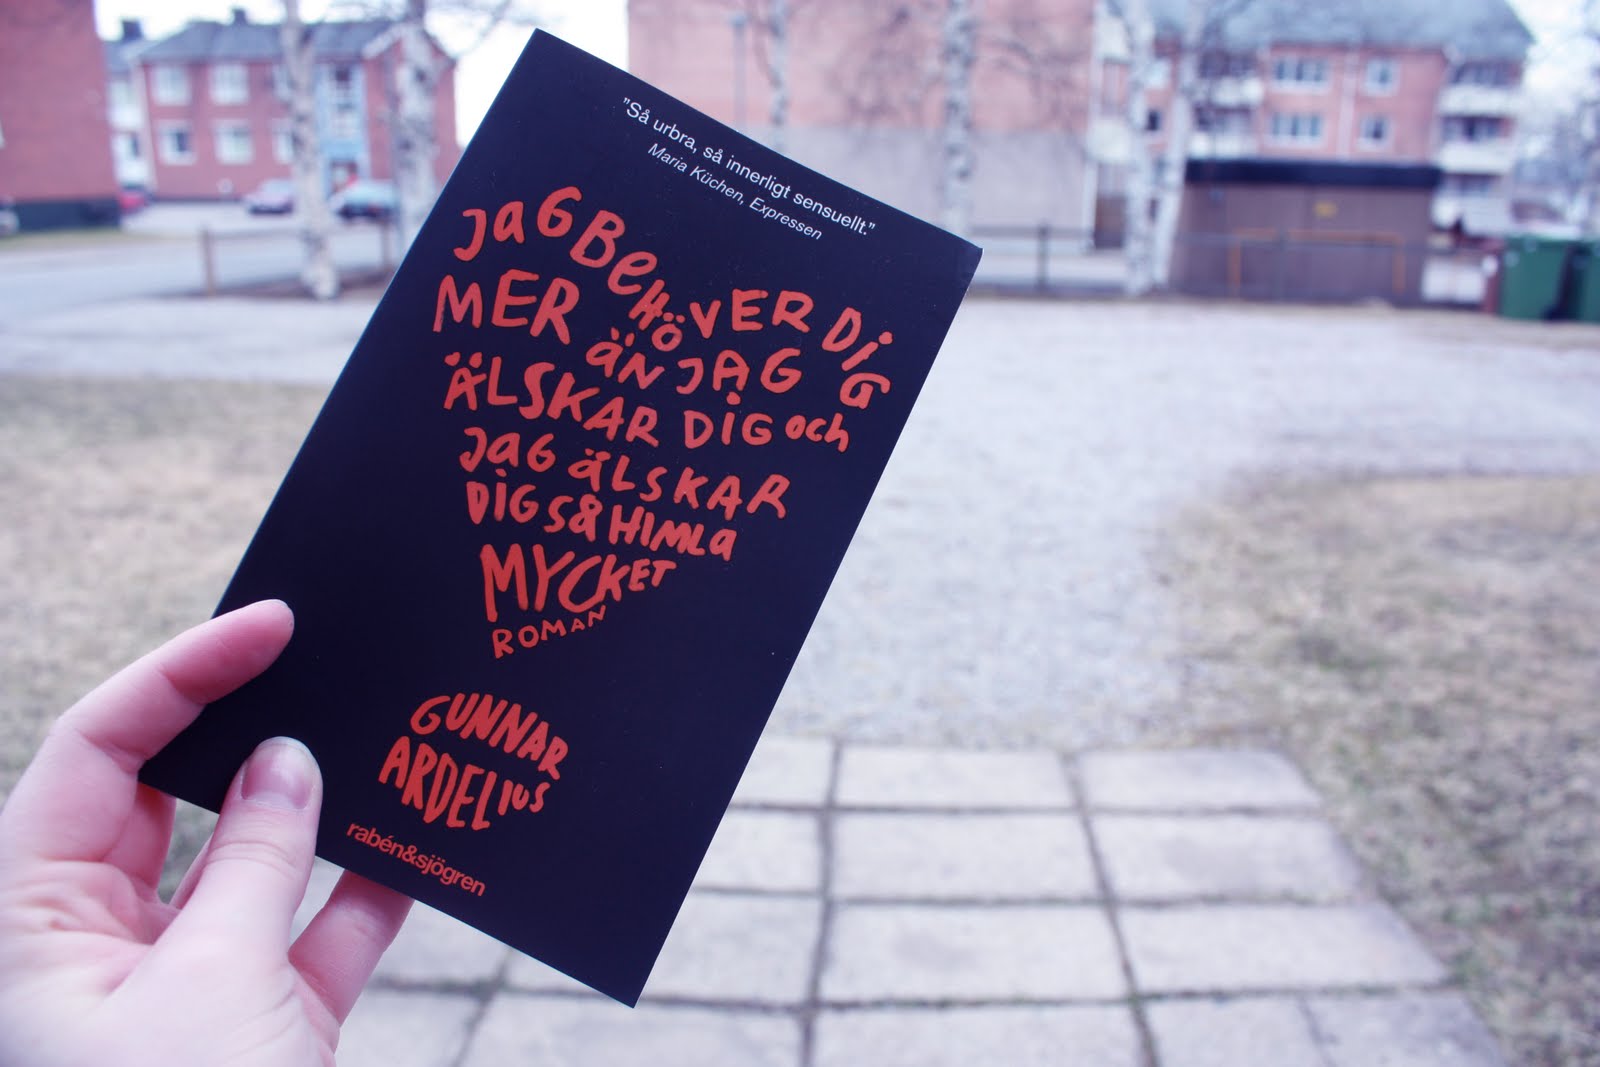 "Så urbra, så innerligt sensuellt."
Maria Küchen, Expressen
JaG BeHÖVER DiG
MER äN JAG
ÄLSKAR DiG och
JaG äLSKAR
DiG Så HIMLa
MYCKET
ROMAN
GUNNAR
ARDELIUS
rabén&sjögren